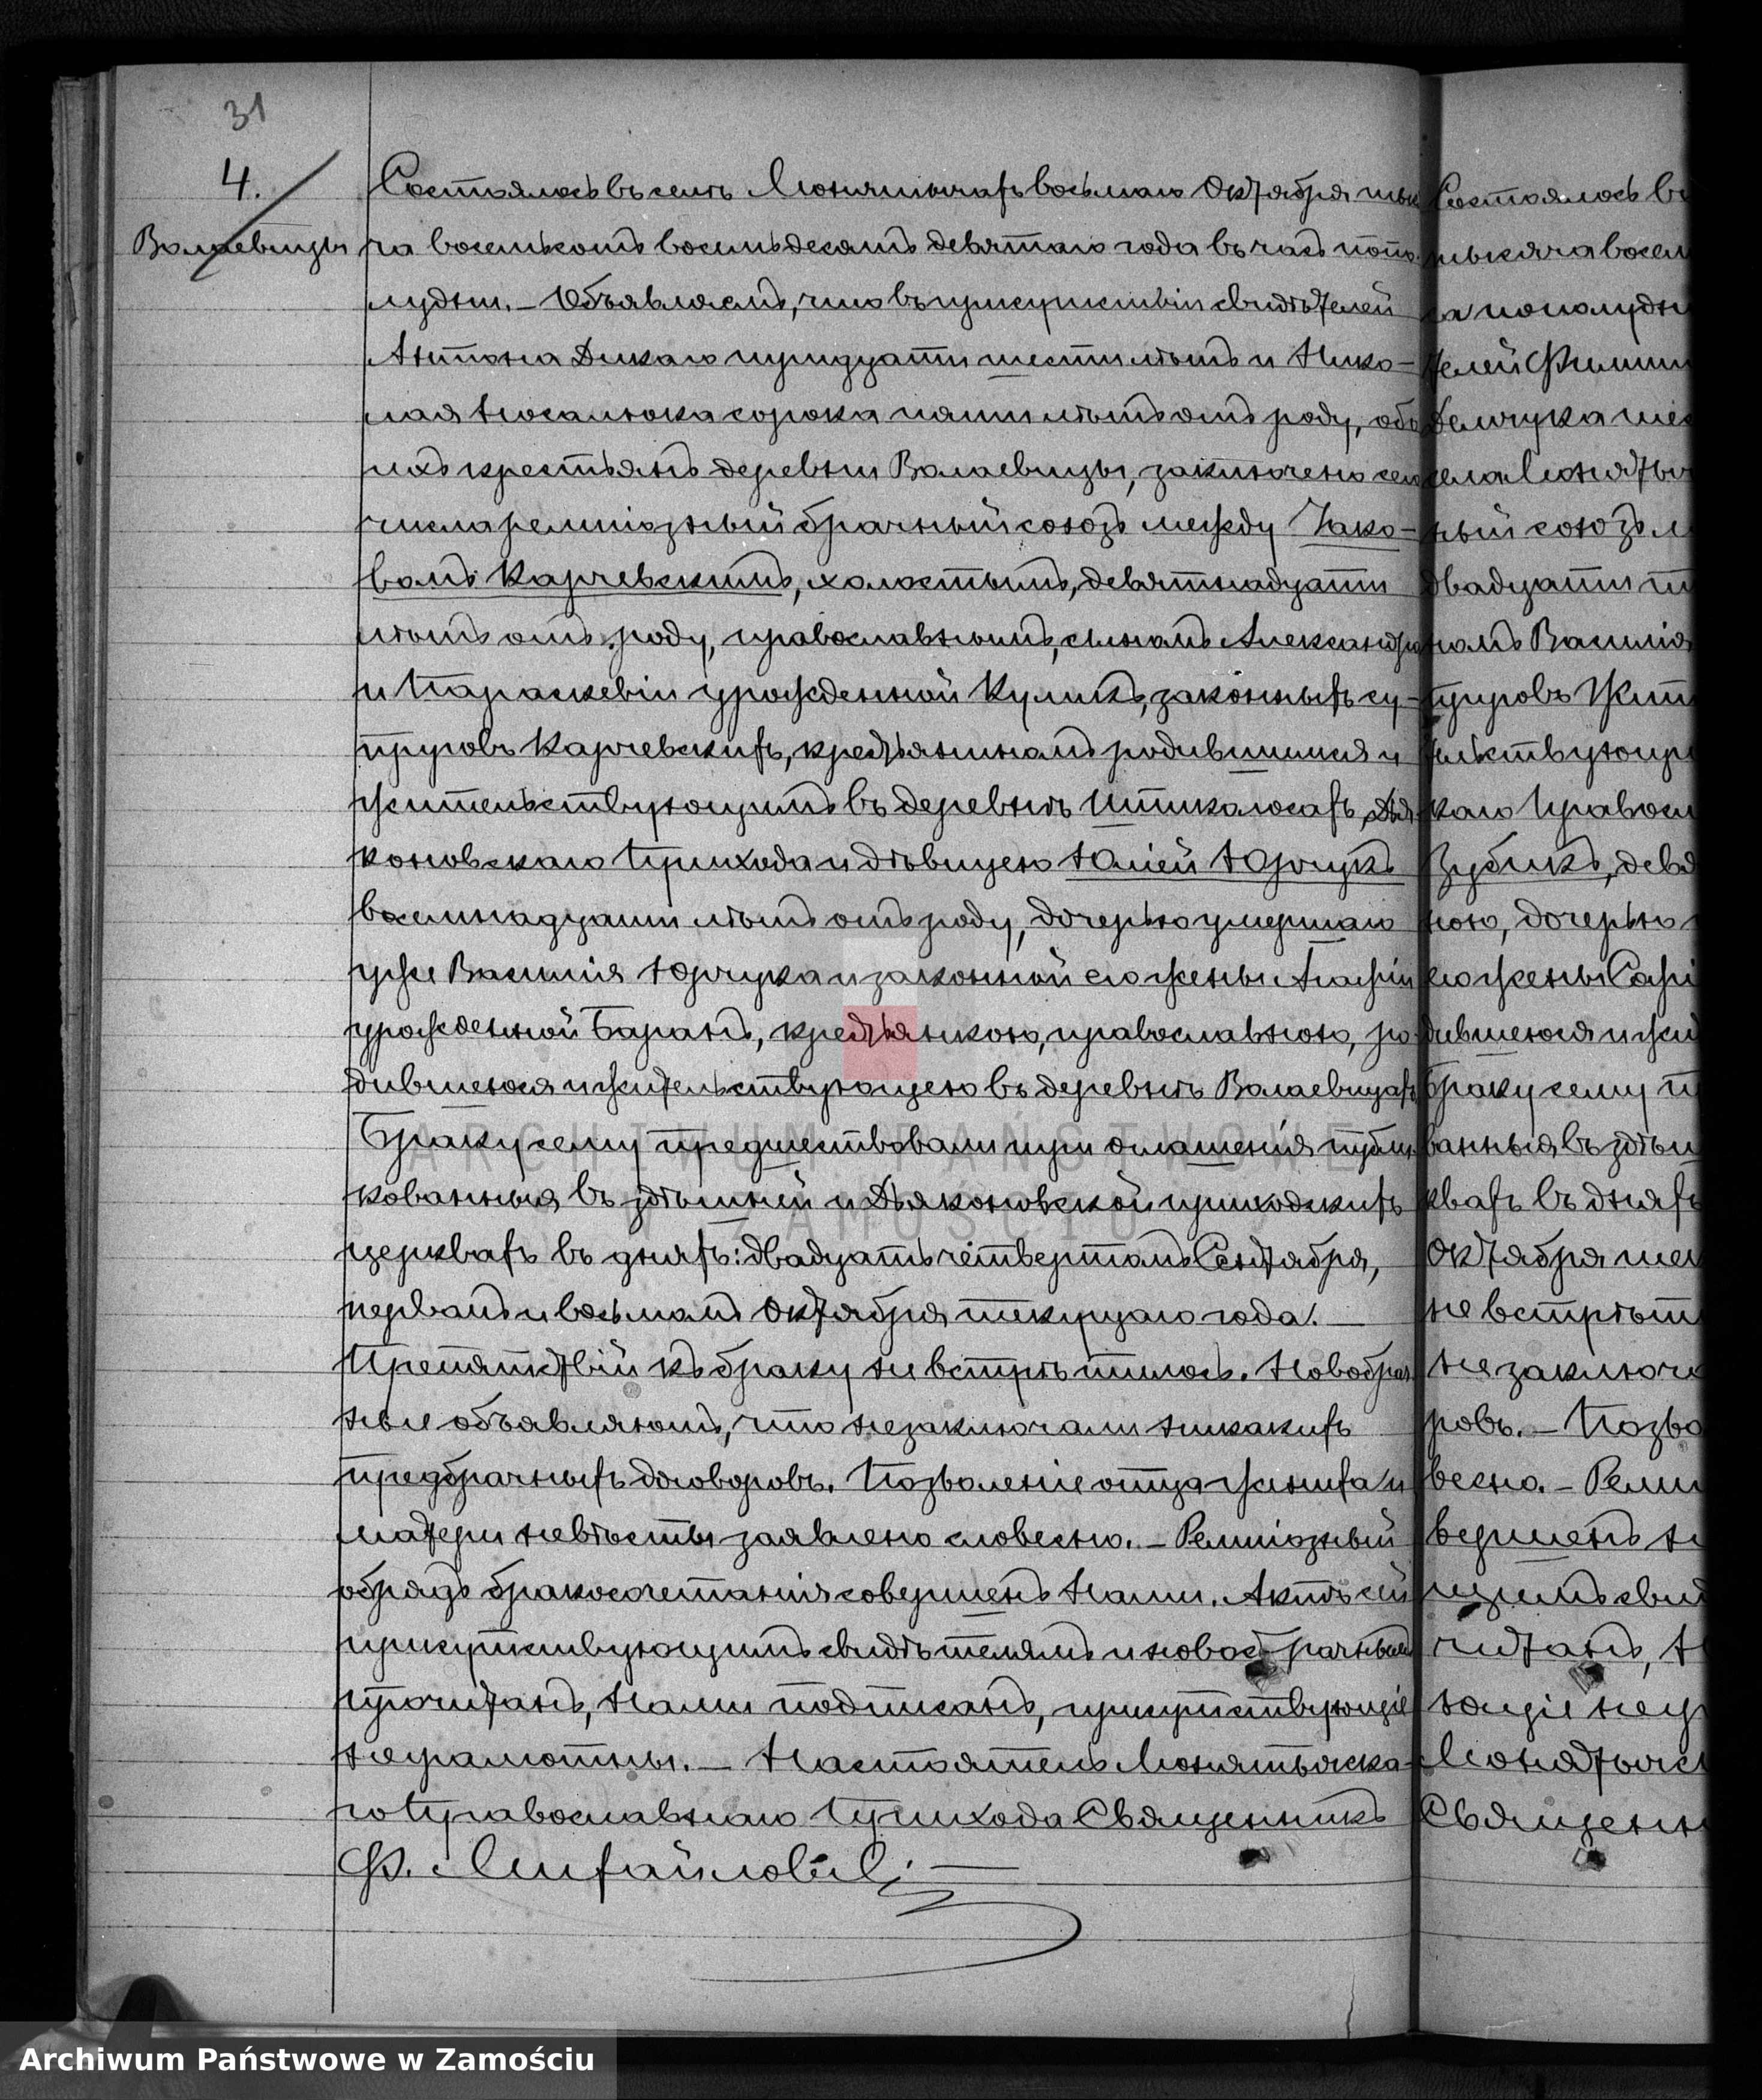 31
4.
Состоялось въ селѣ Монятычахъ восьмаго Октября тыся
Волаевицы
ча восемьсотъ восемьдесятъ девятаго года въ часъ попо
лудни. – Объявляемъ, что въ присутствіи свидѣтелей
Антона Дикаго тридцати шести лѣтъ и Нико-
лая сорока пяти лѣтъ отъ роду, обо
ихъ крестьянъ деревни Волаевицы, заключенъ сего
числа религіозный бračный союзъ между Іако-
вомъ Карчевскимъ, холостымъ, девятнадцати
лѣтъ отъ роду, православнымъ, сыномъ Александра
и Параскевіи урожденной Куликъ, законныхъ су-
пруговъ Карчевскихъ, крестьяниномъ родившимся и
жительствующимъ въ деревнѣ Дья-
коновскаго Прихода и дѣвицею Юліей Юрчукъ
восемнадцати лѣтъ отъ роду, дочерью умершаго
уже Василія Юрчука и законной его жены
урожденной Баранъ, крестьянкою, православною, ро-
дившеюся и жительствующею въ деревнѣ Волаевицахъ
Браку сему предшествовали три оглашенія публи-
кованныя въ здѣшней и Дьяконовской приходскихъ
церквахъ въ дняхъ: двадцать четвертомъ Сентября,
первомъ и восьмомъ Октября текущаго года. —
Препятствій къ браку не встрѣтилось. Новобрач
ные объявляютъ, что незаключали никакихъ
предбрачныхъ договоровъ. Позволеніе отца жениха и
матери невѣсты заявлено словесно. – Религіозный
обрядъ бракосочетанія совершенъ Нами. Актъ сей
присутствующимъ свидѣтелямъ и новобрачнымъ
прочитанъ, Нами подписанъ, присутствующіе
неграмотны. — Настоятель Монятычска-
го Православнаго Прихода Священникъ
Ф. Михайловъ
Состоялось въ
тысяча восем
са пополудни
телей Филип
села Монятыч
ный союзъ м
двадцати
номъ Василія
пруговъ
тельствующи
каго Правосл
Зубикъ, девя
ною, дочерью
его жены Софі
дившеюся и жи
Браку сему п
ванныя въ здѣш
квахъ въ дняхъ
Октября
не встрѣти
не заключа
ровъ. — Позво
весно. – Рели
вершенъ Н
щимъ свид
читанъ, Н
ющіе негр
Монятычс
Священн
ARCHIWUM PAŃSTWOWE
W ZAMOŚCIU
Archiwum Państwowe w Zamościu